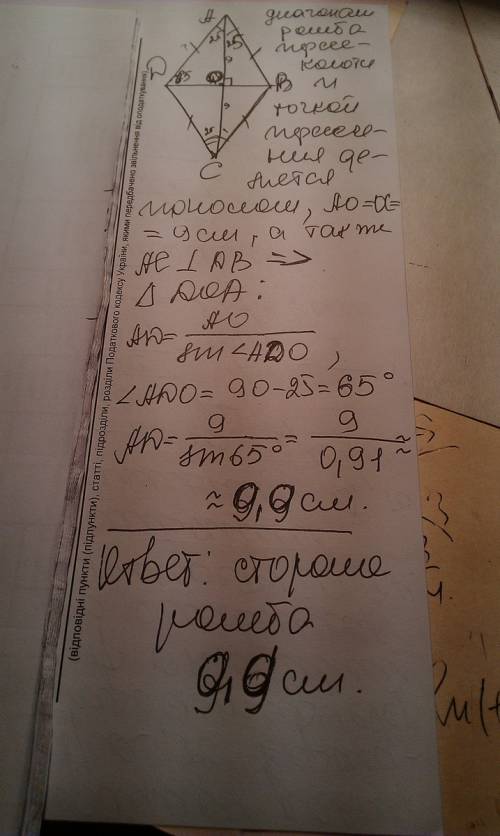 диагонали
ромба
пересе-
каются
и
точкой
пересече-
ния де-
лятся
A
25 25
D 65 O B
25
C
пополам, AO=OC=
=9см, а также
AC ⊥ DB =>
△ DOA:
AD= AO / sin∠ADO ,
∠ADO= 90-25=65°
AD= 9 / sin65° = 9 / 0,91 ≈
≈ 9,9 см.
Ответ: сторона
ромба
9,9 см.
(відповідні пункти (підпункти), статті, підрозділи, розділи Податкового кодексу України, якими передбачено звільнення від оподаткування)